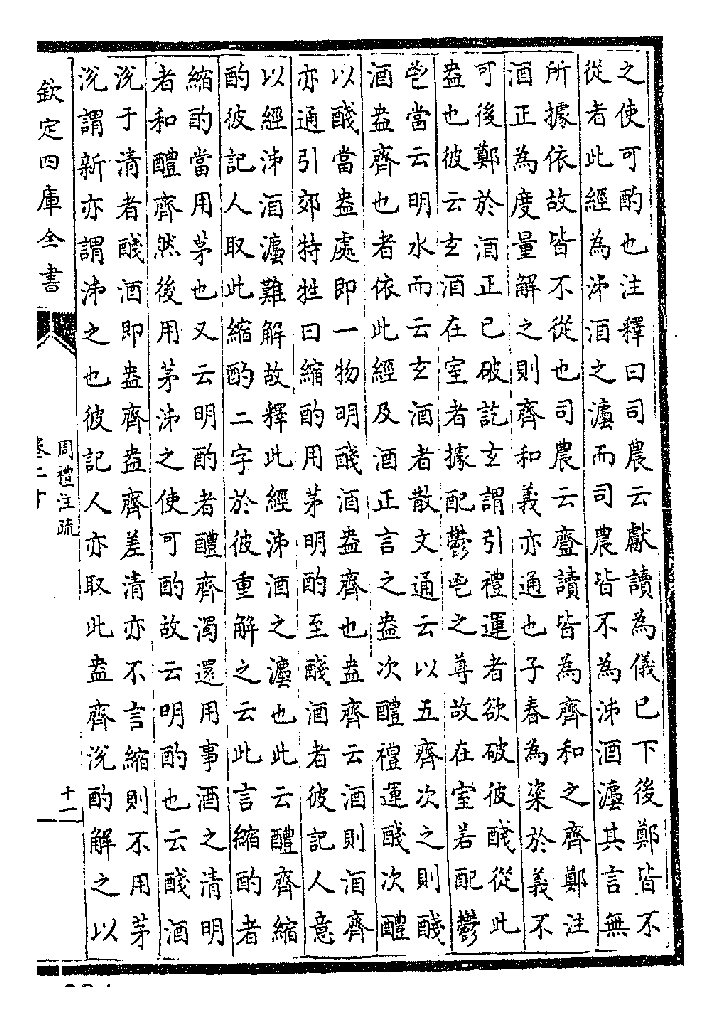 之使可酌也注釋曰司農云獻讀為儀已下後鄭皆不
從者此經為泲酒之灋而司農皆不為泲酒灋其言無
所據依故皆不從也司農云齍讀皆為齊和之齊鄭注
酒正為度量解之則齊和義亦通也子春為粢於義不
可後鄭於酒正已破訖玄謂引禮運者欲破彼醆從此
盎也彼云玄酒在室者據配鬱鬯之尊故在室若配鬱
鬯當云明水而云玄酒者散文通云以五齊次之則醆
酒盎齊也者依此經及酒正言之盎次醴禮運醆次醴
以醆當盎處即一物明醆酒盎齊也盎齊云酒則酒齊
亦通引郊特牲曰縮酌用茅明酌至醆酒者彼記人意
以經泲酒灋難解故釋此經泲酒之灋也此云醴齊縮
酌彼記人取此縮酌二字於彼重解之云此言縮酌者
縮酌當用茅也又云明酌者醴齊濁還用事酒之清明
者和醴齊然後用茅泲之使可酌故云明酌也云醆酒
涗于清者醆酒即盎齊盎齊差清亦不言縮則不用茅
涗謂新亦謂泲之也彼記人亦取此盎齊涗酌解之以
欽定四庫全書
周禮注疏
卷二十
十一